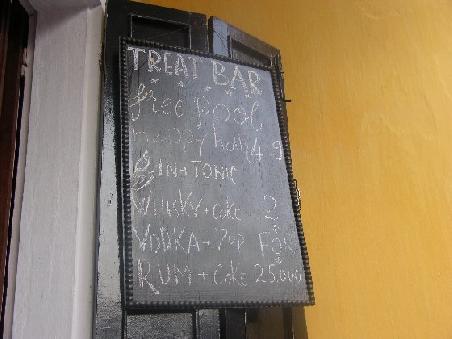 TREAT BAR
free pool
happy hour 4 9
GIN+TONIC
WHISKY+coke 2
VODKA+7up FOR
RUM+coke 25.000